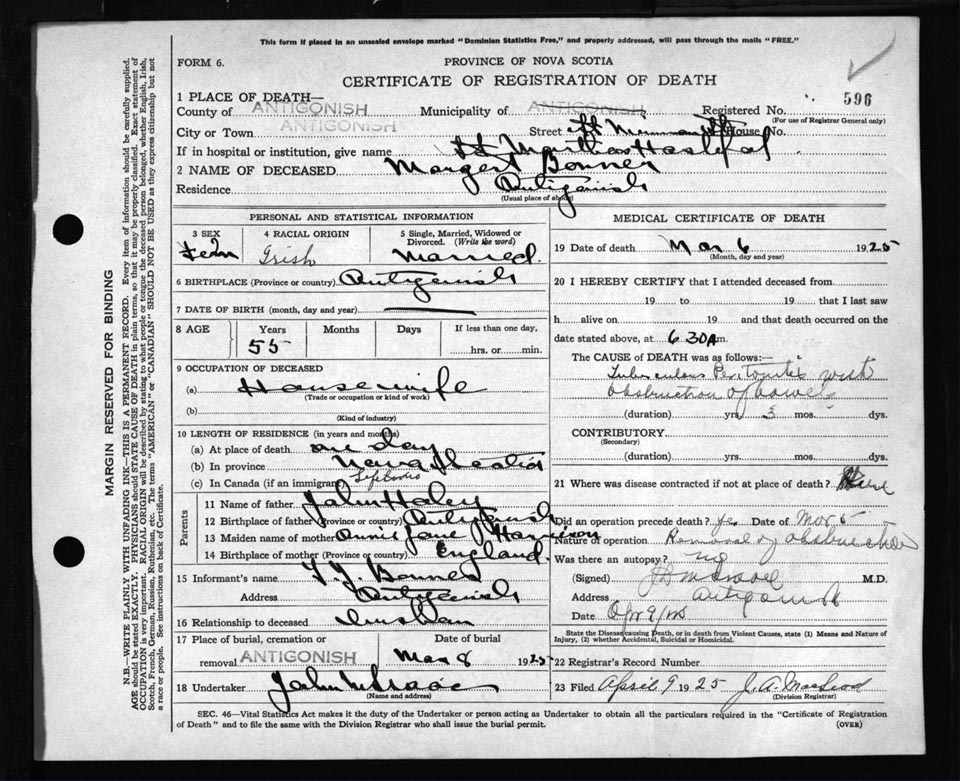 This form if placed in an unsealed envelope marked "Dominion Statistics Free," and properly addressed, will pass through the mails "FREE."
FORM 6.
PROVINCE OF NOVA SCOTIA
CERTIFICATE OF REGISTRATION OF DEATH
596
1 PLACE OF DEATH—
County of ANTIGONISH Municipality of ANTIGONISH Registered No.
(For use of Registrar General only)
City or Town ANTIGONISH Street House No.
If in hospital or institution, give name St Marthas Hospital
2 NAME OF DECEASED Margert Bonner
Residence Antigonish
(Usual place of abode)
PERSONAL AND STATISTICAL INFORMATION
3 SEX 4 RACIAL ORIGIN 5 Single, Married, Widowed or Divorced. (Write the word)
Fem Irish Married.
6 BIRTHPLACE (Province or country) Antigonish
7 DATE OF BIRTH (month, day and year)
8 AGE Years Months Days If less than one day,
55 hrs. or min.
9 OCCUPATION OF DECEASED
(a) Housewife
(Trade or occupation or kind of work)
(b)
(Kind of industry)
10 LENGTH OF RESIDENCE (in years and months)
(a) At place of death one day
(b) In province Nova Scotia
(c) In Canada (if an immigrant) Life time
Parents
11 Name of father John Haley
12 Birthplace of father (Province or country) Antigonish
13 Maiden name of mother Annie Jane Harrison
14 Birthplace of mother (Province or country) England.
15 Informant's name Bonner
Address Antigonish
16 Relationship to deceased
17 Place of burial, cremation or removal ANTIGONISH Date of burial Mar 8 1925
18 Undertaker John McIsaac
(Name and address)
MEDICAL CERTIFICATE OF DEATH
19 Date of death Mar 6 1925
(Month, day and year)
20 I HEREBY CERTIFY that I attended deceased from
19 to 19 that I last saw
h alive on 19 and that death occurred on the
date stated above, at 6 30 A m.
The CAUSE of DEATH was as follows:—
Tuberculous Peritonitis with
obstruction of bowels
(duration) yrs. 3 mos. dys.
CONTRIBUTORY
(Secondary)
(duration) yrs. mos. dys.
21 Where was disease contracted if not at place of death?
Did an operation precede death? yes Date of Mar 5
Nature of operation Removal of obstruction
Was there an autopsy? no
(Signed) M.D.
Address Antigonish
Date Apr 9/25
State the Disease causing Death, or in death from Violent Causes, state (1) Means and Nature of Injury, (2) whether Accidental, Suicidal or Homicidal.
22 Registrar's Record Number
23 Filed April 9 1925 J. A. MacLeod
(Division Registrar)
SEC. 46—Vital Statistics Act makes it the duty of the Undertaker or person acting as Undertaker to obtain all the particulars required in the "Certificate of Registration
of Death" and to file the same with the Division Registrar who shall issue the burial permit.
(OVER)
MARGIN RESERVED FOR BINDING
N.B.—WRITE PLAINLY WITH UNFADING INK—THIS IS A PERMANENT RECORD. Every item of information should be carefully supplied.
AGE should be stated EXACTLY. PHYSICIANS should STATE CAUSE OF DEATH in plain terms, so that it may be properly classified. Exact statement of
OCCUPATION is very important. RACIAL ORIGIN will be described by stating to what people or tongue the deceased person belonged, whether English, Irish,
Scotch, French, German, Russian, Ruthenian, etc. The terms "AMERICAN" or "CANADIAN" SHOULD NOT BE USED as they express citizenship but not
a race or people. See instructions on back of Certificate.